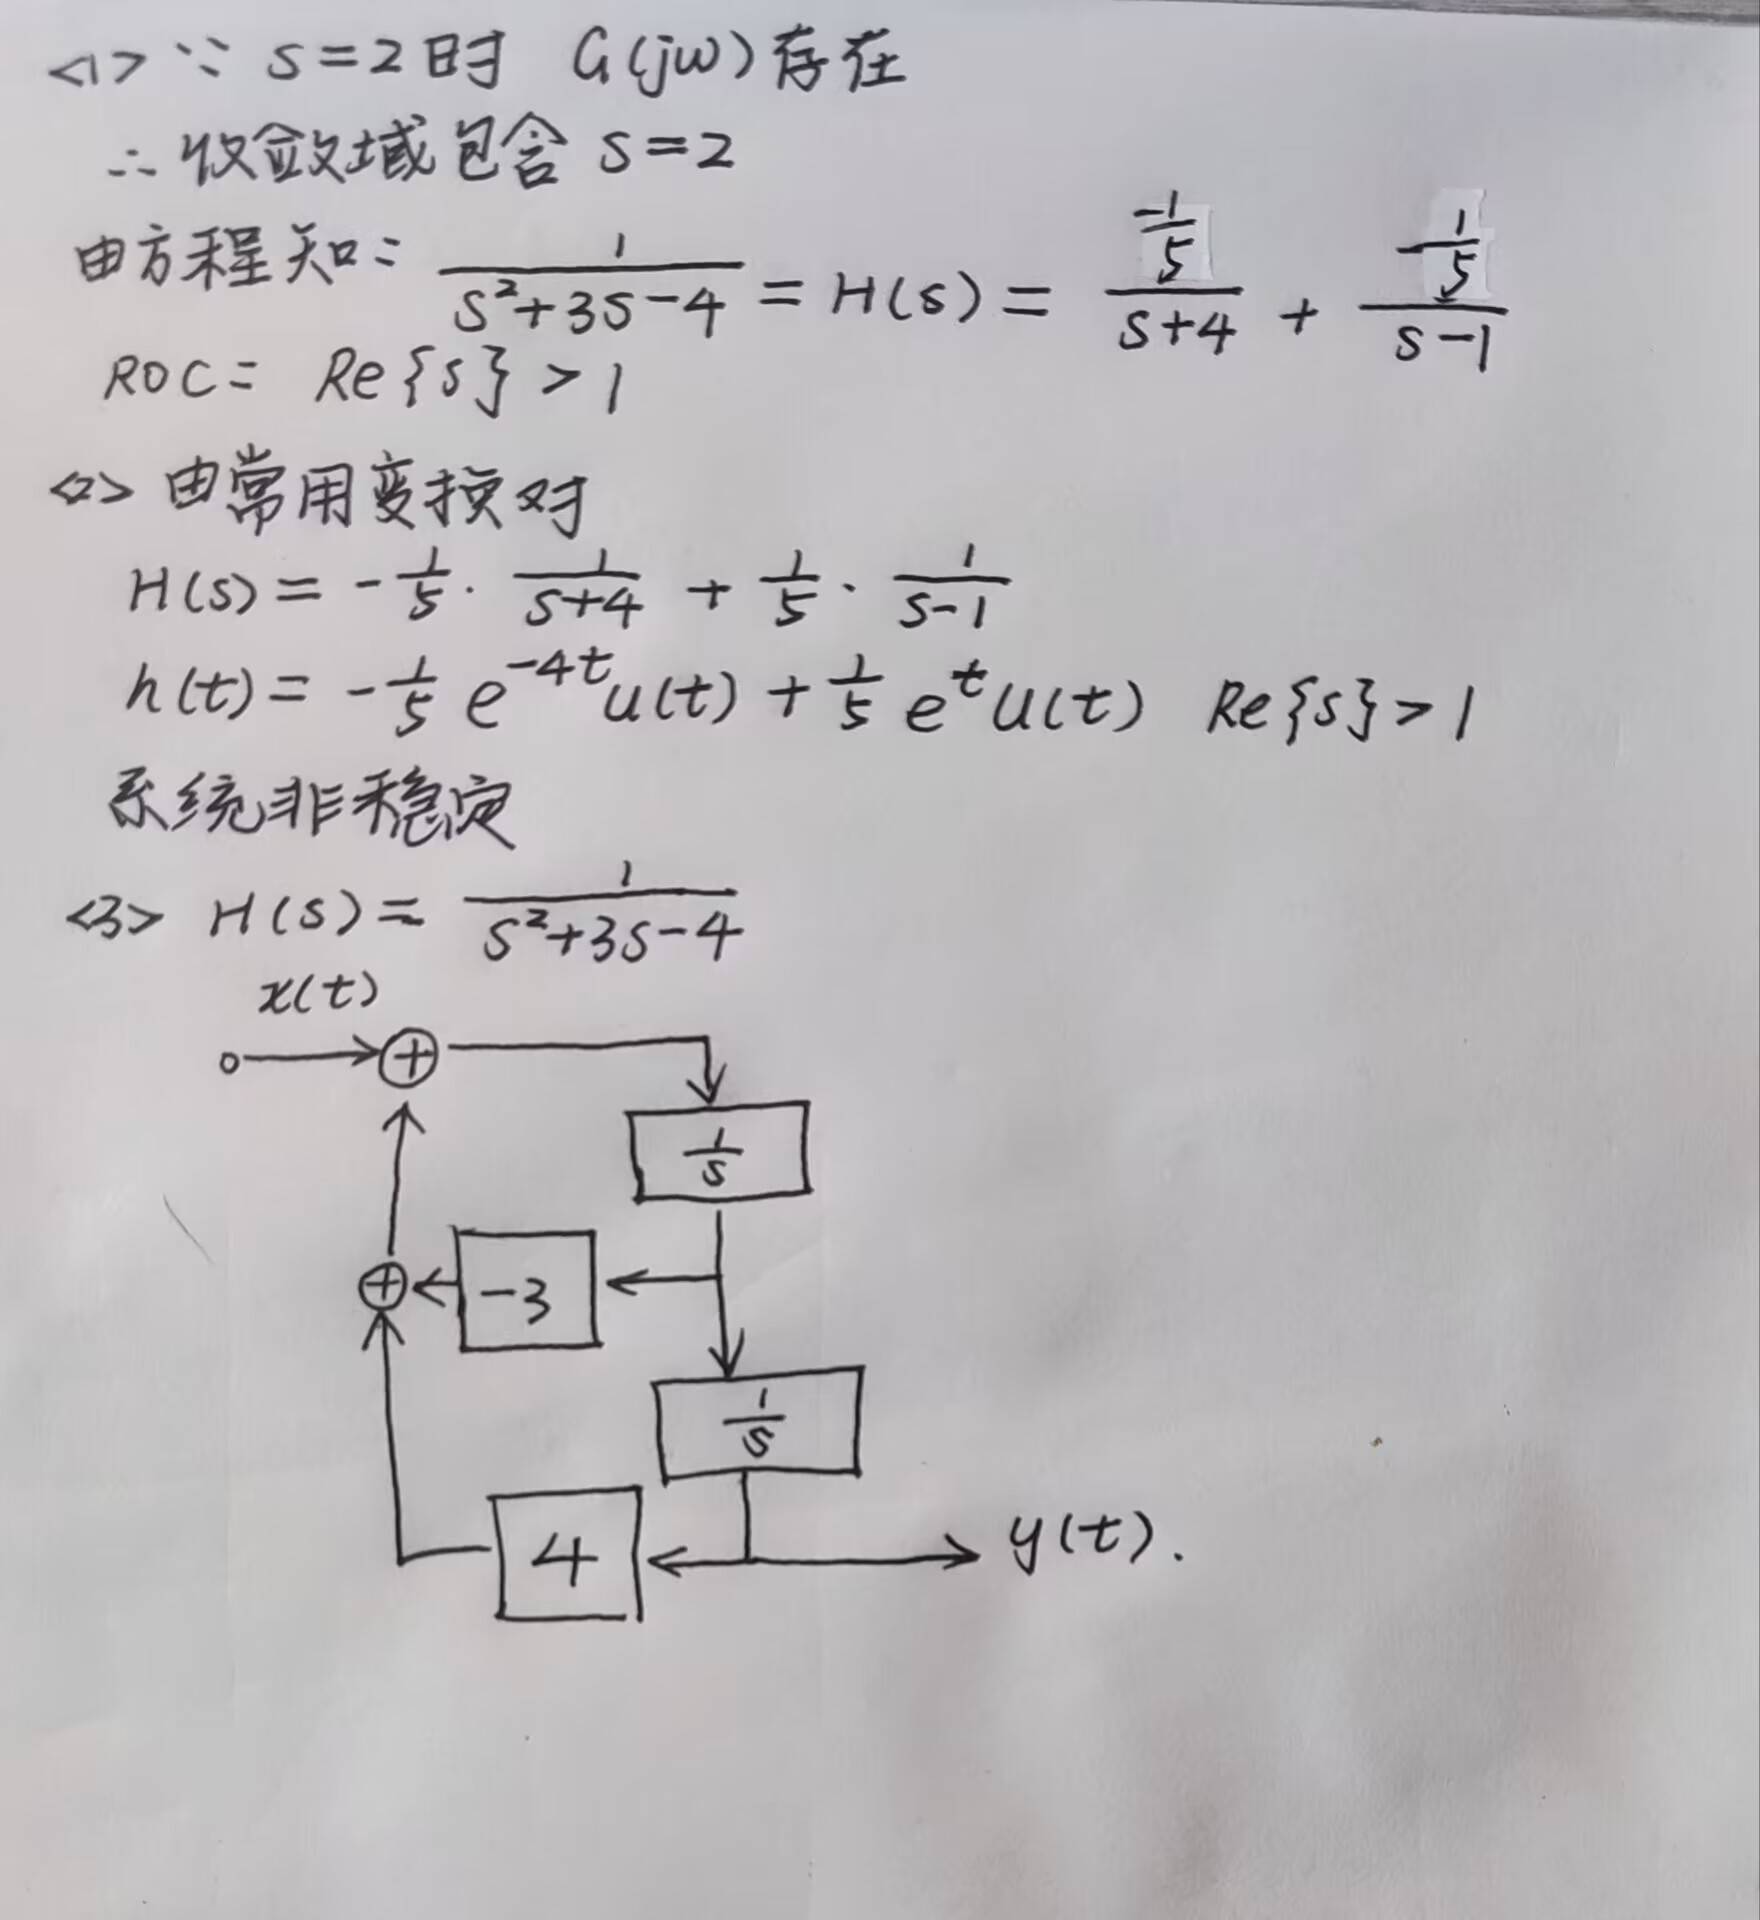 <1> ∵ s=2时 G(jω)存在
∴ 收敛域包含 s=2
由方程知: 1/(s²+3s-4) = H(s) = (-1/5)/(s+4) + (-1/5)/(s-1)
ROC: Re{s} > 1
<2> 由常用变换对
H(s) = -1/5 · 1/(s+4) + 1/5 · 1/(s-1)
h(t) = -1/5 e^{-4t}u(t) + 1/5 e^{t}u(t) Re{s} > 1
系统非稳定
<3> H(s) = 1/(s²+3s-4)
x(t)
+
1/s
+ -3
1/s
4 y(t).